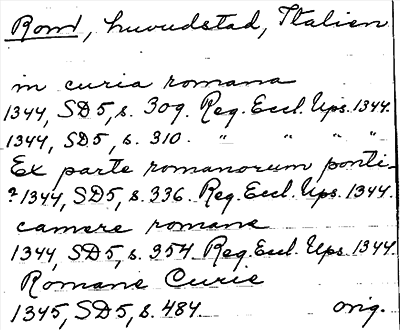 Rom, huvudstad, Italien
in curia romana
1344, SD5, s. 309. Reg. Eccl. Ups. 1344.
1344, SD5, s. 310. " " " "
Ex parte romanorum ponti-
? 1344, SD5, s. 336. Reg. Eccl. Ups. 1344.
camere romane
1344, SD5, s. 354. Reg. Eccl. Ups. 1344
Romane Curie
1345, SD5, s. 484. orig.